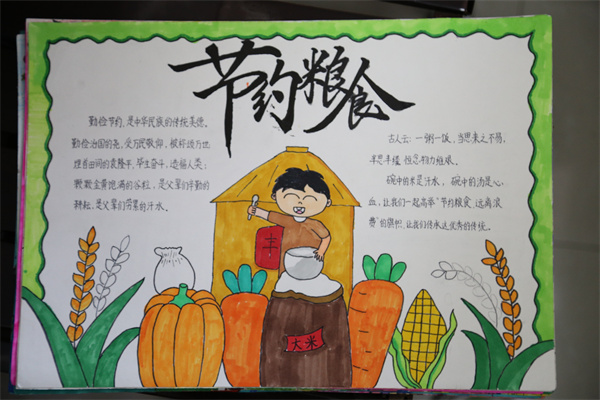 节约粮食
勤俭节约，是中华民族的传统美德。
勤俭治国的尧，受万民敬仰，被称颂万世
埋首田间的袁隆平，毕生奋斗，造福人类；
颗颗金黄饱满的谷粒，是父辈们辛勤的
耕耘，是父辈们劳累的汗水。
古人云：一粥一饭，当思来之不易，
半思半缕，恒念物力维艰。
碗中的米是汗水，碗中的汤是心
血，让我们一起高举“节约粮食，远离浪
费”的旗帜，让我们传承这优秀的传统。
丰
大米